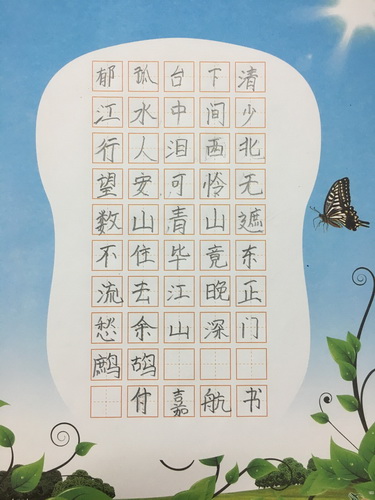 郁孤台下清
江水中间少
行人泪西北
望安可怜无
数山青山遮
不住毕竟东
流去江晚正
愁余山深门
鹧鸪
付嘉航书